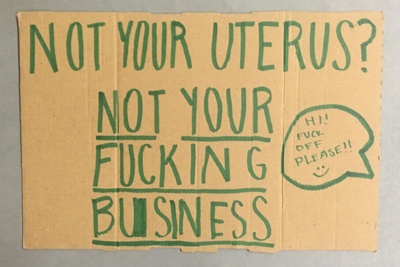 NOT YOUR UTERUS?
NOT YOUR
FUCKING
BUSINESS
HI!
FUCK
OFF
PLEASE!!